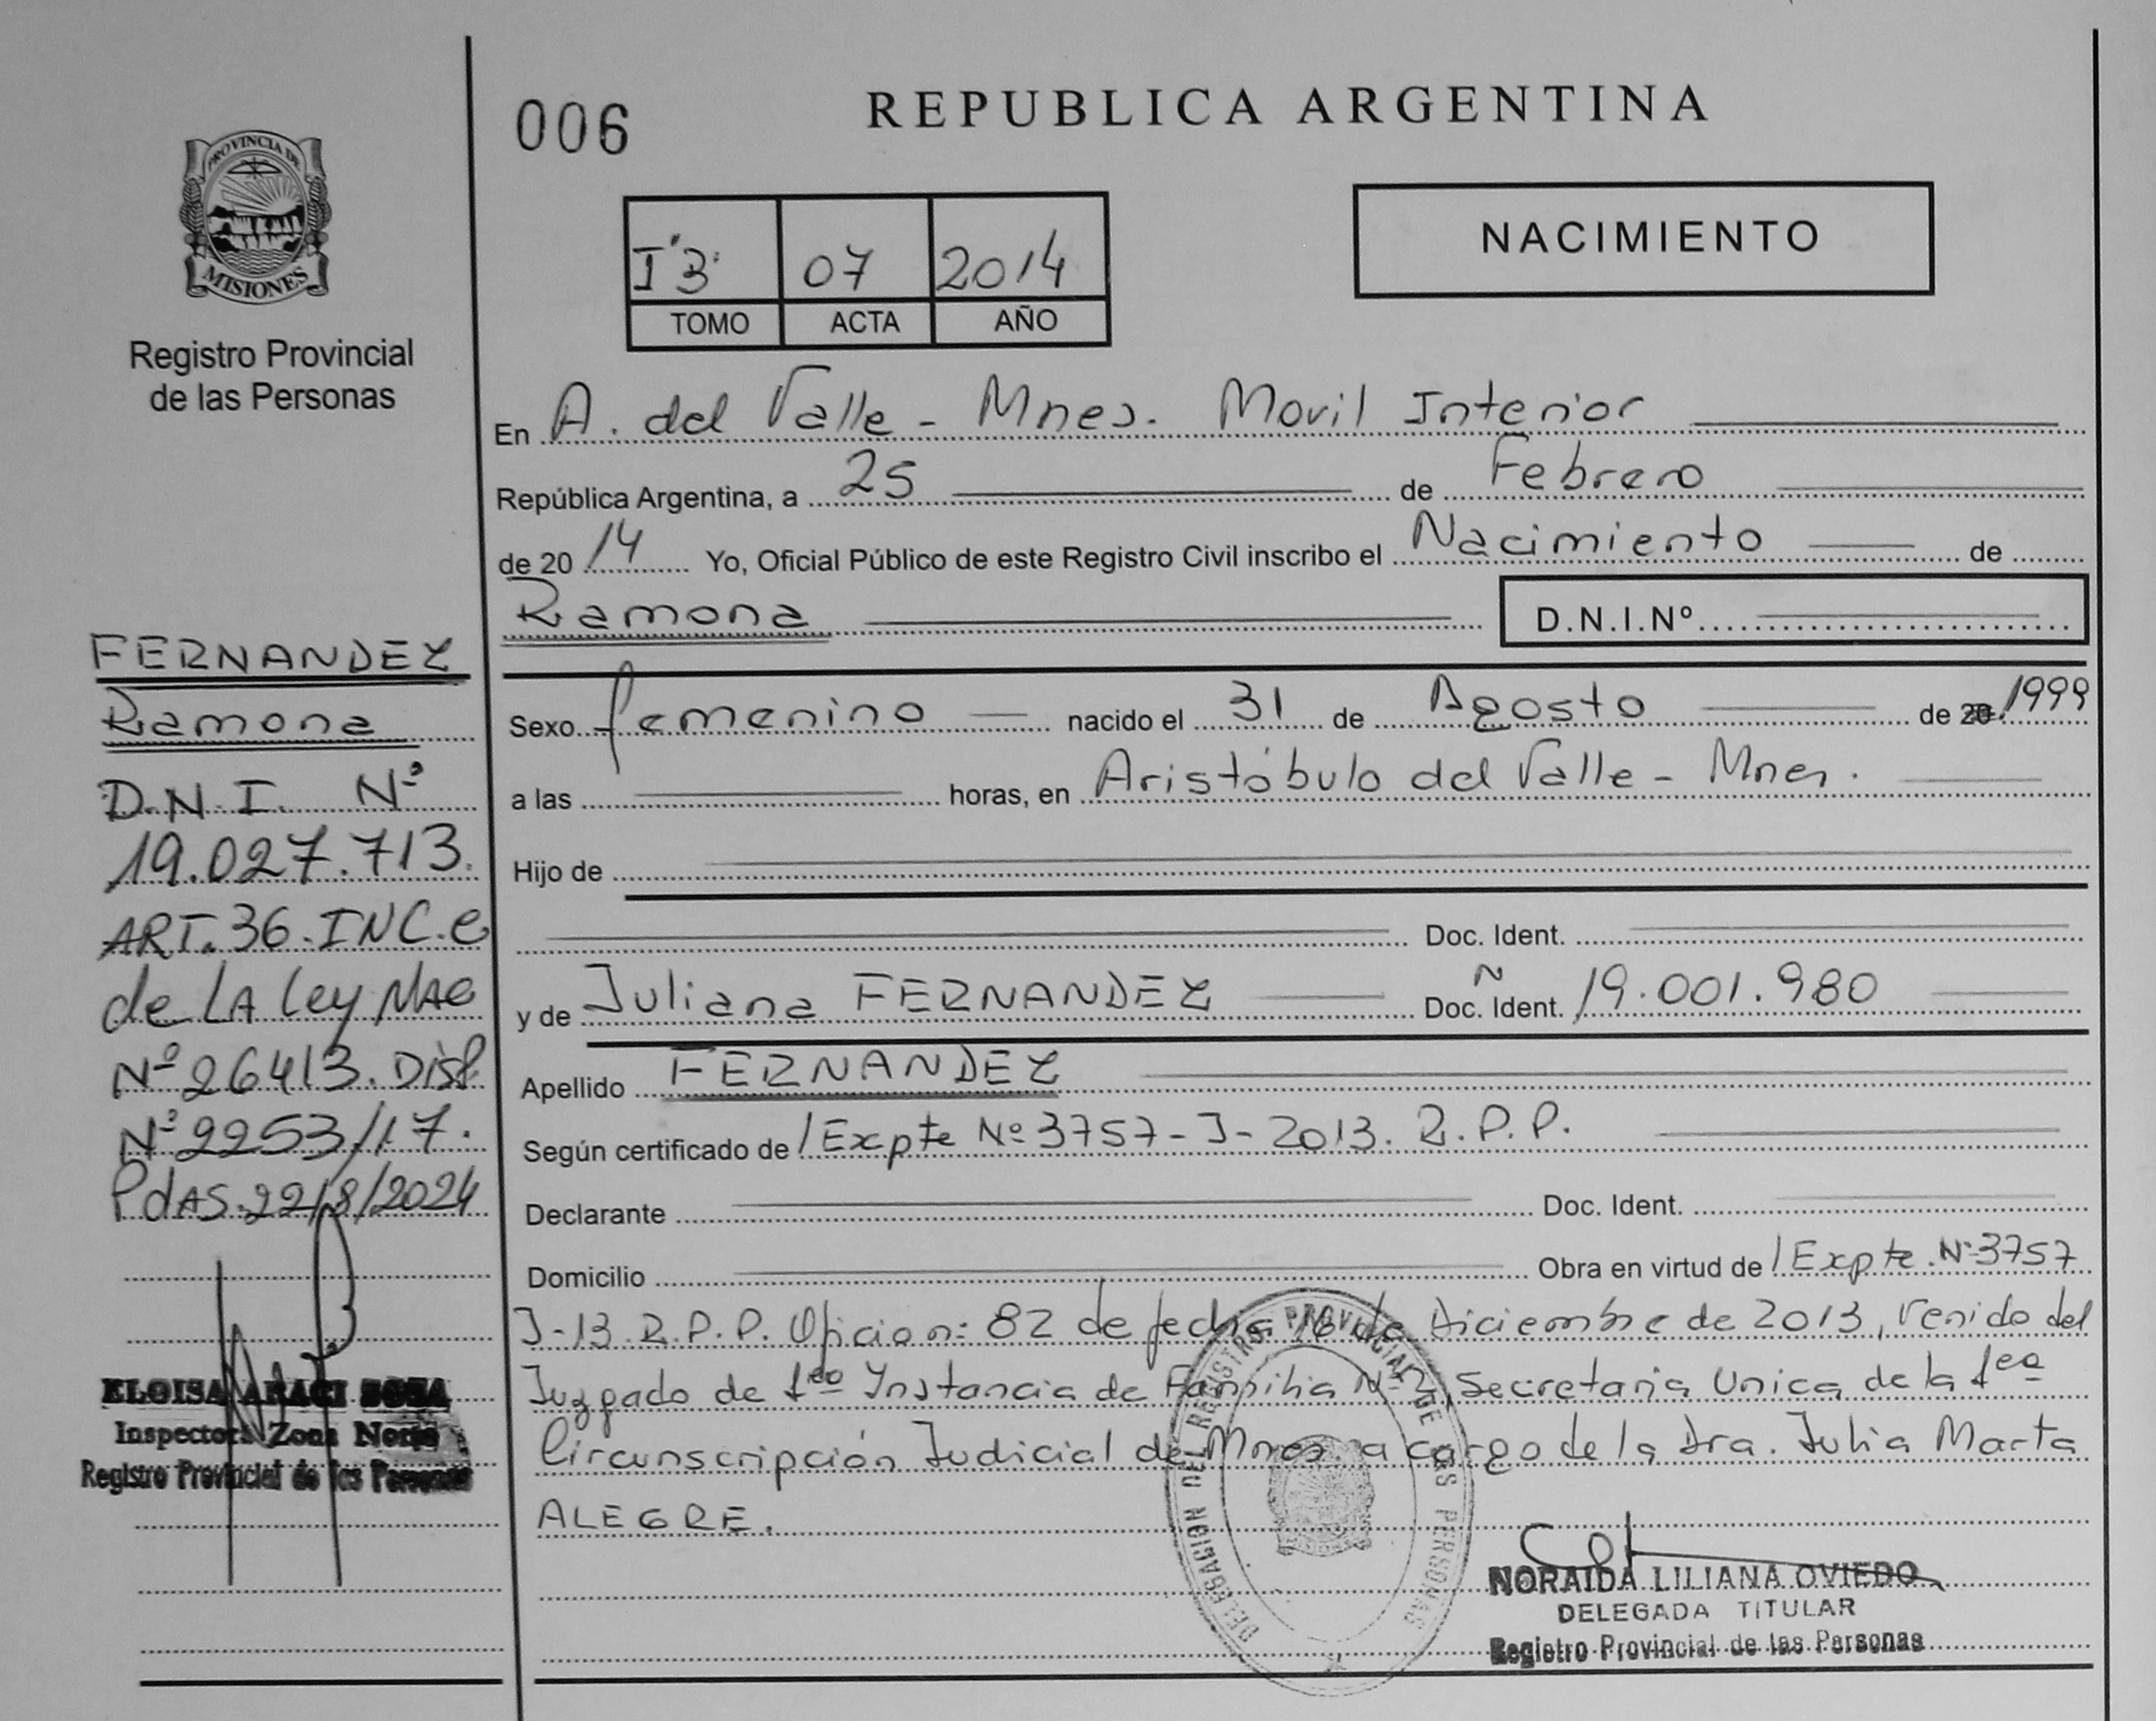 006
REPUBLICA ARGENTINA
PROVINCIA DE
MISIONES
Registro Provincial
de las Personas
I'3' 07 2014
TOMO ACTA AÑO
NACIMIENTO
En A. del Valle - Mnes. Movil Interior
República Argentina, a 25 de Febrero
de 20 14 Yo, Oficial Público de este Registro Civil inscribo el Nacimiento de
Ramona D.N.I.Nº
Sexo femenino nacido el 31 de Agosto de 20 1999
a las horas, en Aristóbulo del Valle - Mnes.
Hijo de
Doc. Ident.
y de Juliana FERNANDEZ Doc. Ident. Nº 19.001.980
Apellido FERNANDEZ
Según certificado de /Expte Nº 3757-J-2013. R.P.P.
Declarante Doc. Ident.
Domicilio Obra en virtud de /Expte. Nº 3757
J-13 R.P.P. Oficio n: 82 de fecha de Diciembre de 2013, venido del
Juzgado de 1era Instancia de Familia Nº Secretaria Unica de la 1era
Circunscripción Judicial de Mnes. a cargo de la Dra. Julia Marta
ALEGRE.
FERNANDEZ
Ramona
D.N.I. Nº
19.027.713.
ART. 36. INC. e
de LA Ley NAC
Nº 26413. Disp
Nº 2253/17.
PdAS. 22/8/2024
ELOISA ARACI SOSA
Inspectora Zona Norte
Registro Provincial de las Personas
DELEGACION DEL REGISTRO PROVINCIAL DE LAS PERSONAS
NORAIDA LILIANA OVIEDO
DELEGADA TITULAR
Registro Provincial de las Personas